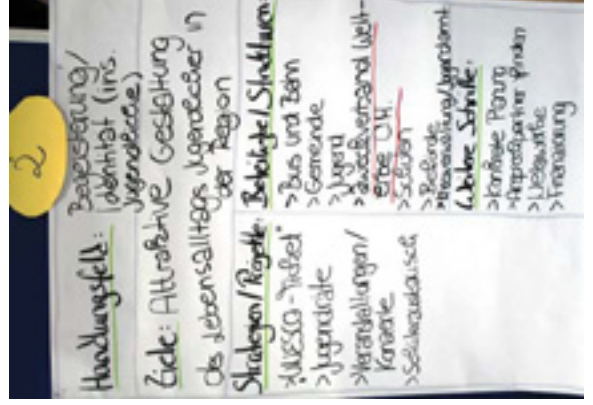 2
Handlungsfeld: Begeisterung/
Identität (ins.
Jugendliche)
Ziele: Attraktive Gestaltung
des Lebensalltags Jugendlicher in
der Region
Strategien/Projekte:
>"UNESCO-Ticket"
>Jugendräte
>Veranstaltungen/
Konzerte
>Schüleraustausch
Beteiligte/Strukturen:
>Bus und Bahn
>Gemeinde
>Jugend
>Zweckverband Welt-
erbe
>Schulen
>Verbände
>Kreisverwaltung/Jugendamt
Weitere Schritte:
>Konkrete Planung
>Ansprechpartner finden
>Finanzierung